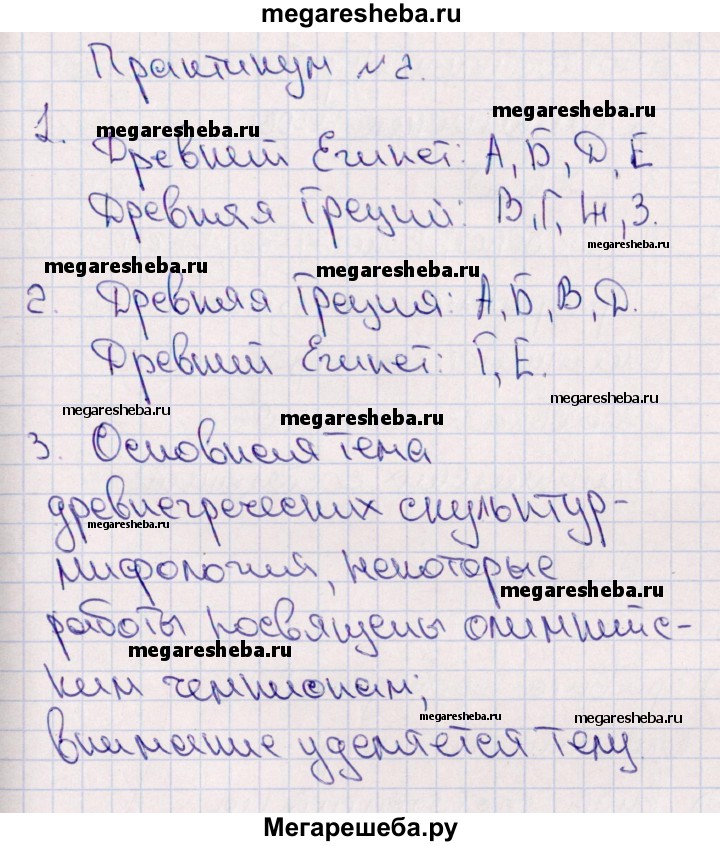 megaresheba.ru
Практикум №2.
megaresheba.ru
megaresheba.ru
1. Древний Египет: А, Б, Д, Е
Древняя Греций: В, Г, Ж, З.
megaresheba.ru
megaresheba.ru
megaresheba.ru
2. Древняя Греция: А, Б, В, Д.
Древний Египет: Г, Е.
megaresheba.ru
megaresheba.ru
megaresheba.ru
3. Основная тема
древнегреческих скульптур-
megaresheba.ru
мифология, некоторые
megaresheba.ru
работы посвящены олимпийс-
megaresheba.ru
ким чемпионам;
megaresheba.ru
megaresheba.ru
внимание уделяется телу
Мегарешеба.ру